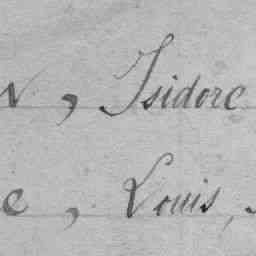 v, Isidore
e, Louis,